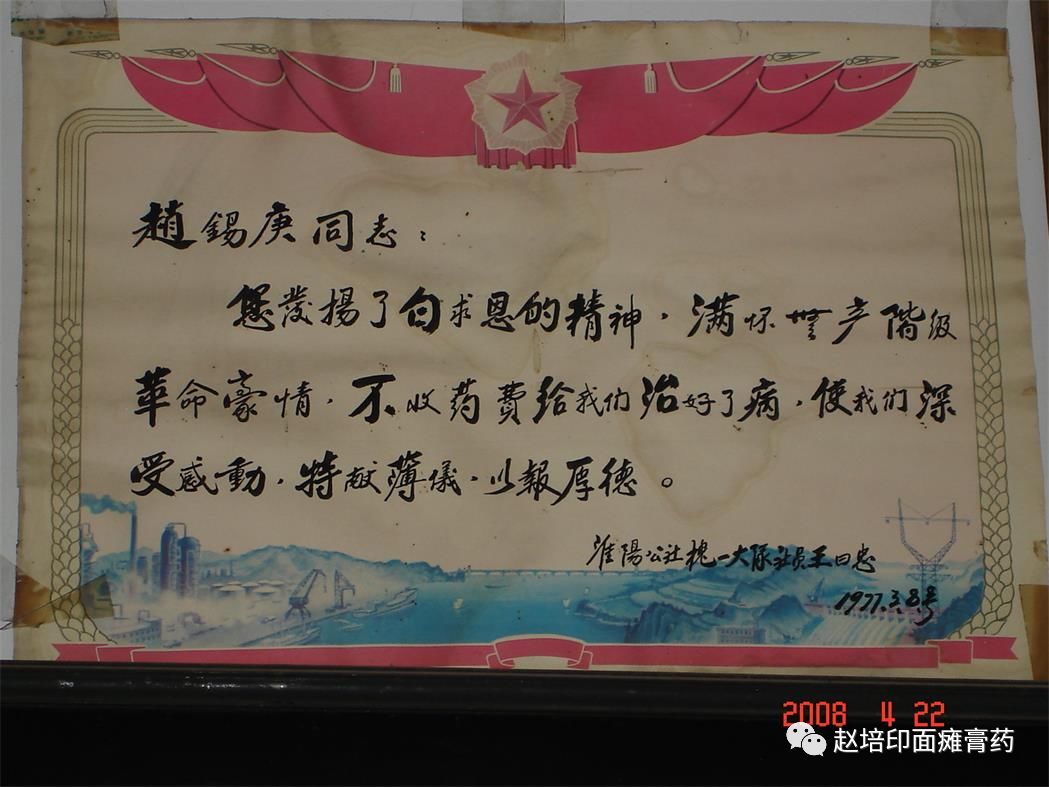 趙錫庚同志：
您發揚了白求恩的精神，满怀無产階级
革命豪情，不收药費给我们治好了病，使我们深
受感動，特献薄儀，以報厚德。
淮陽公社槐一大队社員王曰忠
1977.3.8号
2008 4 22
赵培印面瘫膏药